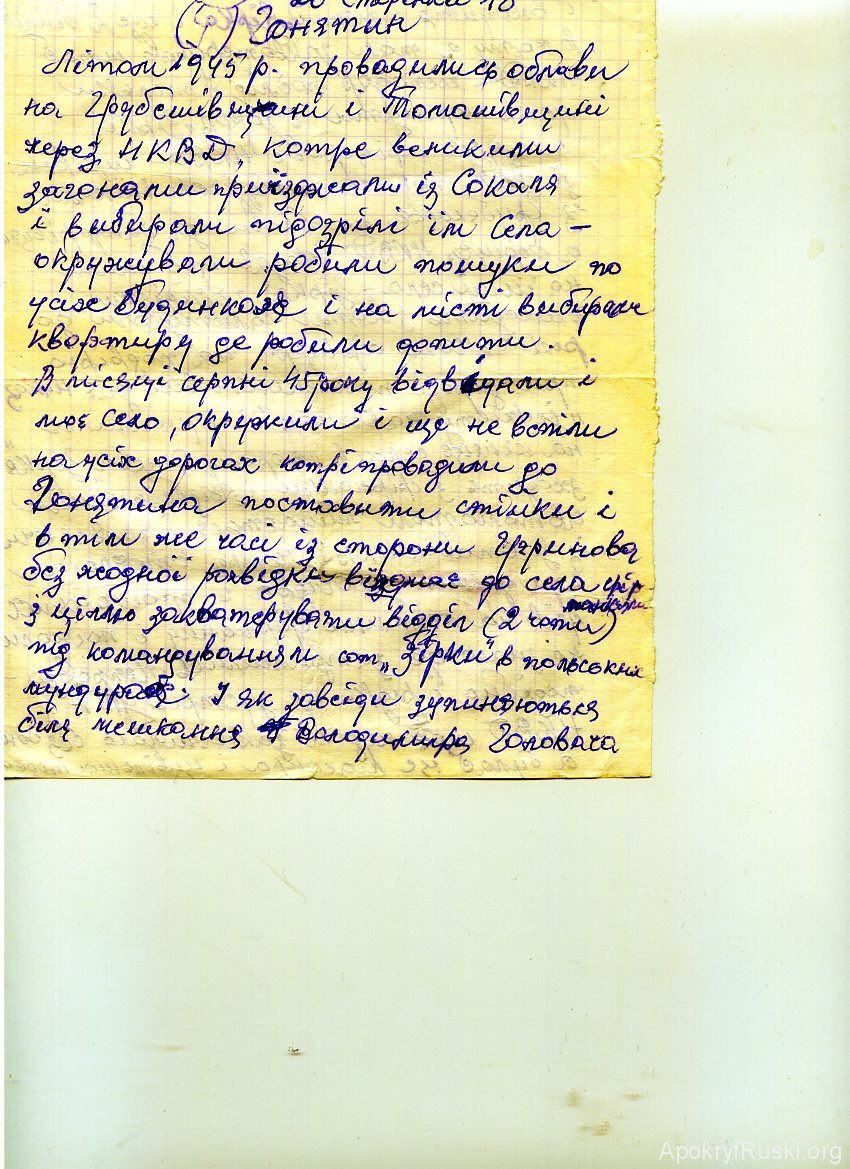 до сторінки 10
(7) Гонятин
Літом 1945 р. проводились облави
на Грубешівщині і Томашівщині
через НКВД, котре великими
загонами приїзджали із Сокаля
і вибирали підозрілі їм села –
окружували робили пошуки по
усіх будинкох і на місті вибирали
квартиру де робили допити.
В місяці серпні 45 року відвідали і
моє село, окружили і ще не встіли
на усіх дорогах котрі проводили до
Гонятина поставити стійки і
в тім же часі із сторони Угринова
без жодної розвідки віїзджає до села
з ціллю закватерувати відділ (2 чоти)
під командуванням сот. „Зірки" в польських
мундурах. І як завсіди зупиняються
біля мешкання Володимира Головача
ApokryfRuski.org